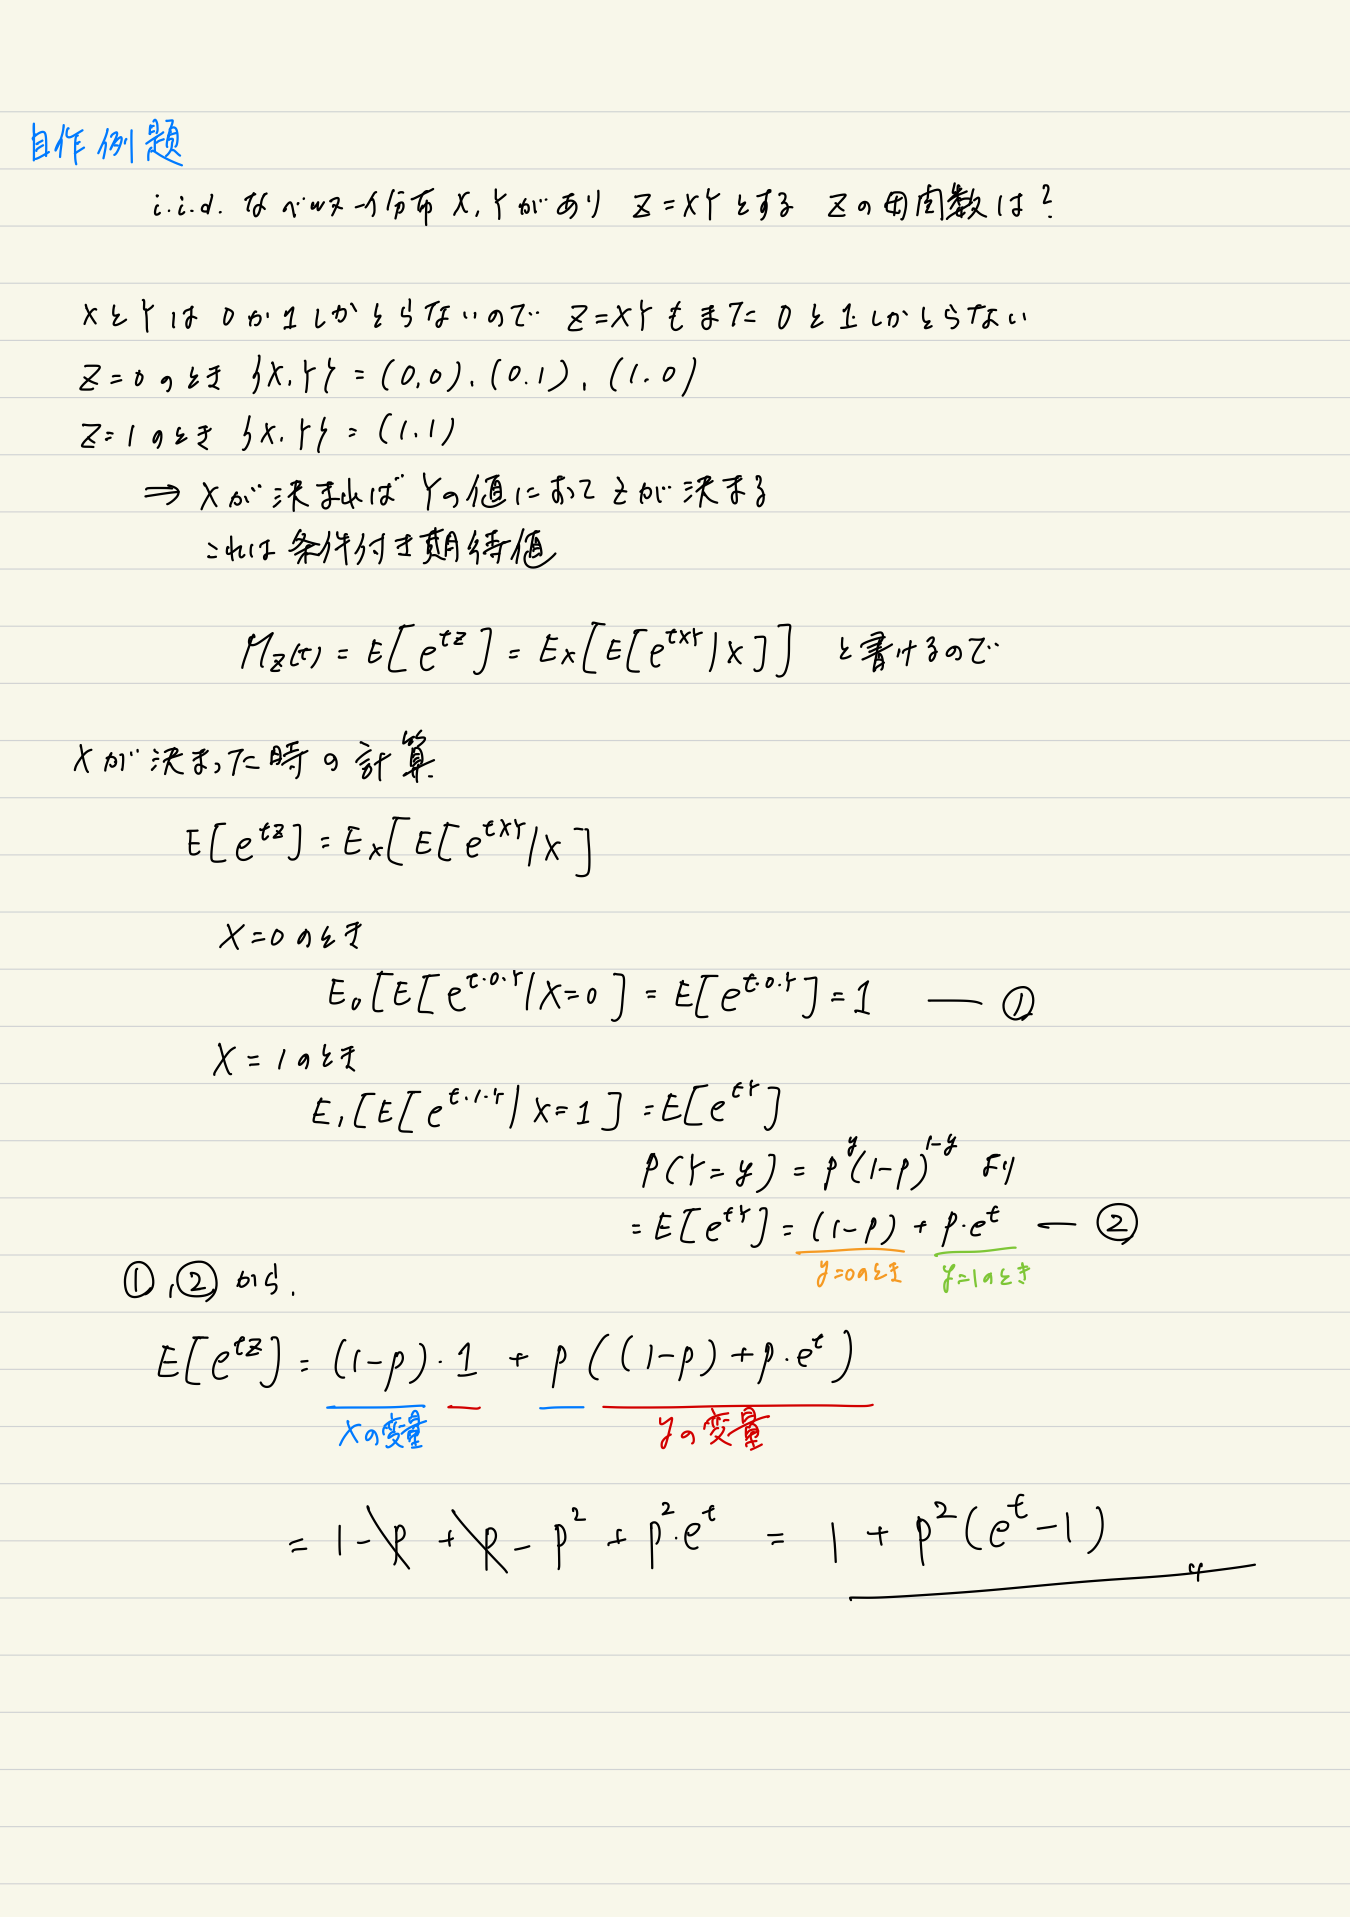 自作例題
i.i.d. なベルヌーイ分布 X, Y があり Z=XYとする Zの母関数は?
XとYは 0か1しかとらないので Z=XYもまた 0と1しかとらない
Z=0のとき {X,Y} = (0,0), (0,1), (1,0)
Z=1のとき {X,Y} = (1,1)
⇒ Xが決まれば Yの値によって Zが決まる
これは 条件付き期待値
M_Z(t) = E[e^{tZ}] = E_X[E[e^{tXY}|X]] と書けるので
Xが決まった時の計算
E[e^{tZ}] = E_X[E[e^{tXY}|X]
X=0のとき
E_0[E[e^{t·0·Y}|X=0] = E[e^{t·0·Y}] = 1 — ①
X=1のとき
E_1[E[e^{t·1·Y}|X=1] = E[e^{tY}]
P(Y=y) = p^y(1-p)^{1-y} より
= E[e^{tY}] = (1-p) + p·e^t — ②
y=0のとき y=1のとき
①,②から,
E[e^{tZ}] = (1-p)·1 + p((1-p)+p·e^t)
Xの変量 yの変量
= 1-p+p-p^2+p^2·e^t = 1+p^2(e^t-1)